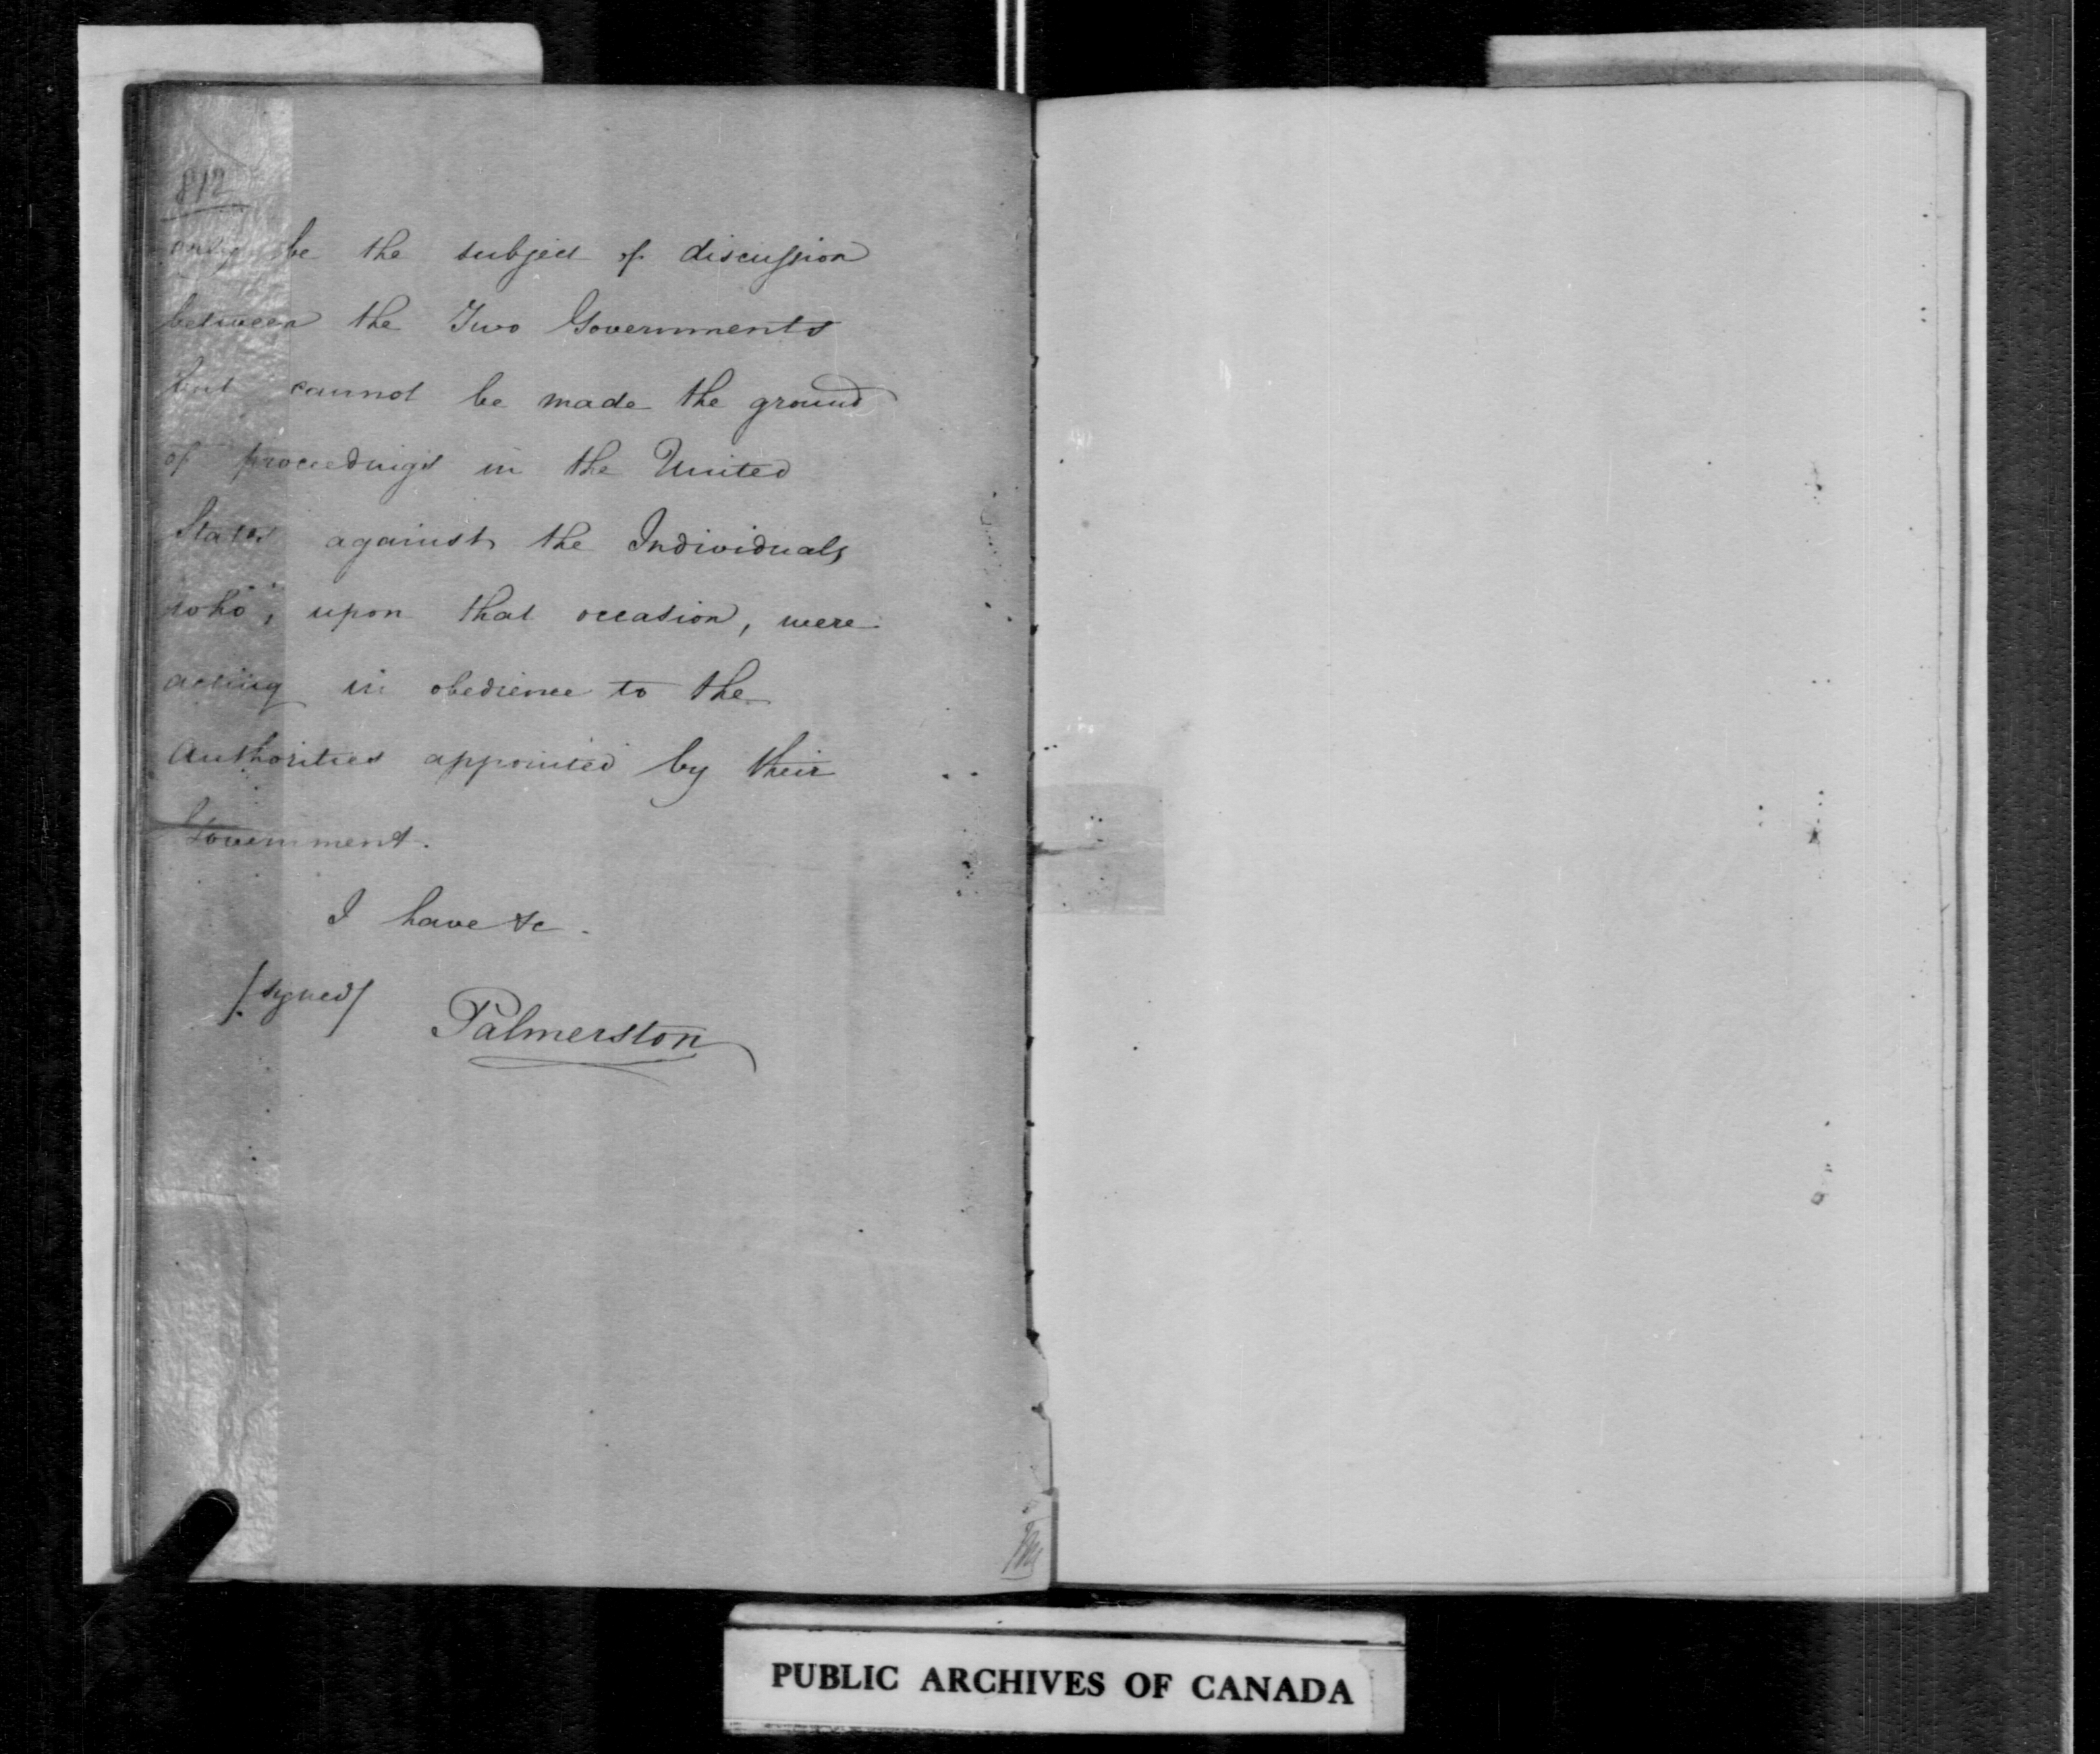 812
only be the subject of discussion
between the Two Governments
but cannot be made the ground
of proceedings in the United
States against the Individuals
who, upon that occasion, were
acting in obedience to the
Authorities appointed by their
Government.
I have &c.
/signed/ Palmerston
PUBLIC ARCHIVES OF CANADA